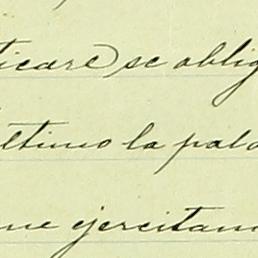 ticare se oblig
ultimo la pala
me ejercitam